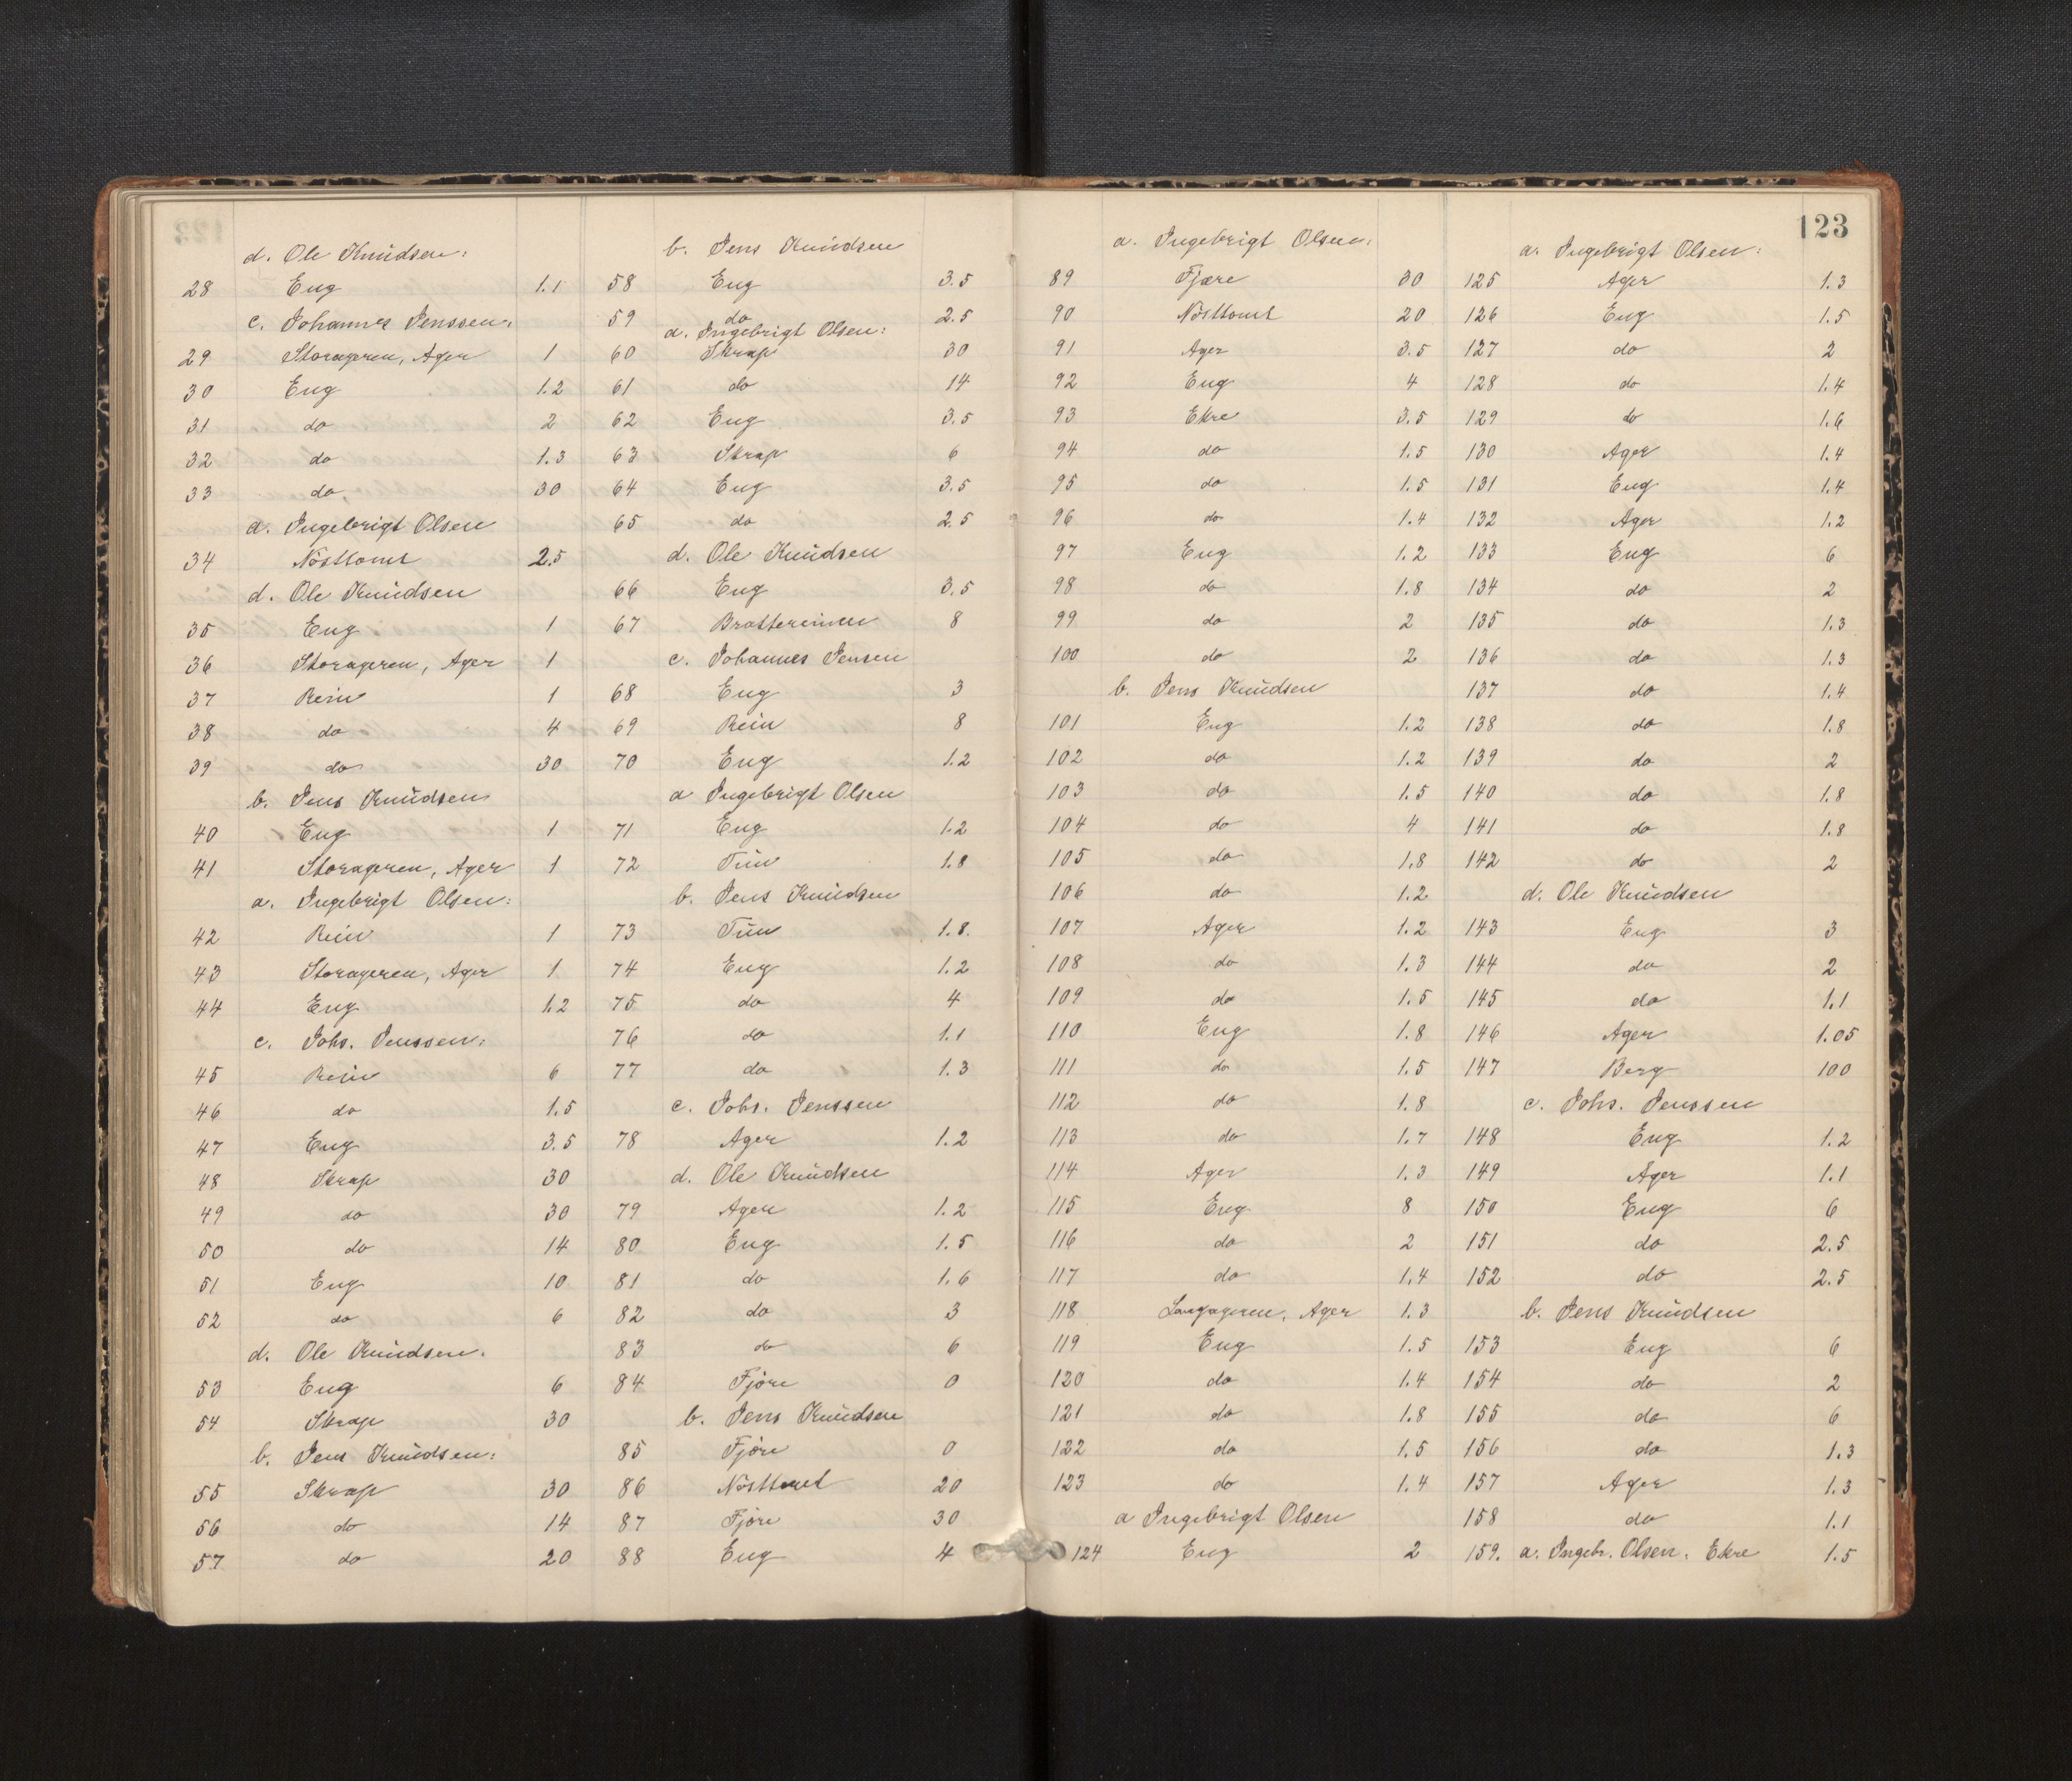 123
d. Ole Knudsen:
28 Eng 1.1
c. Johannes Jenssen:
29 Storageren, Ager 1
30 Eng 1.2
31 do 2
32 do 1.3
33 do 30
a. Ingebrigt Olsen
34 Nösttomt 2.5
d. Ole Knudsen
35 Eng 1
36 Storageren, Ager 1
37 Rein 1
38 do 4
39 do 30
b. Jens Knudsen
40 Eng 1
41 Storageren, Ager 1
a. Ingebrigt Olsen:
42 Rein 1
43 Storageren, Ager 1
44 Eng 1.2
c. Johs. Jenssen:
45 Rein 6
46 do 1.5
47 Eng 3.5
48 Skrap 30
49 do 30
50 do 14
51 Eng 10
52 do 6
d. Ole Knudsen.
53 Eng 6
54 Skrap 30
b. Jens Knudsen:
55 Skrap 30
56 do 14
57 do 20
b. Jens Knudsen
58 Eng 3.5
59 do 2.5
a. Ingebrigt Olsen:
60 Skrap 30
61 do 14
62 Eng 3.5
63 Skrap 6
64 Eng 3.5
65 do 2.5
d. Ole Knudsen
66 Eng 3.5
67 Brattereinen 8
c. Johannes Jensen
68 Eng 3
69 Rein 8
70 Eng 1.2
a Ingebrigt Olsen
71 Eng 1.2
72 Tun 1.8
b. Jens Knudsen
73 Tun 1.8.
74 Eng 1.2
75 do 4
76 do 1.1
77 do 1.3
c. Johs. Jenssen
78 Ager 1.2
d. Ole Knudsen
79 Ager 1.2
80 Eng 1.5
81 do 1.6
82 do 3
83 do 6
84 Fjöre 0
b. Jens Knudsen
85 Fjöre 0
86 Nösttomt 20
87 Fjöre 30
88 Eng 4
a. Ingebrigt Olsen:
89 Fjære 30
90 Nösttomt 20
91 Ager 3.5
92 Eng 4
93 Ekre 3.5
94 do 1.5
95 do 1.5
96 do 1.4
97 Eng 1.2
98 do 1.8
99 do 2
100 do 2
b. Jens Knudsen
101 Eng 1.2
102 do 1.2
103 do 1.5
104 do 4
105 do 1.8
106 do 1.2
107 Ager 1.2
108 do 1.3
109 do 1.5
110 Eng 1.8
111 do 1.5
112 do 1.8
113 do 1.7
114 Ager 1.3
115 Eng 8
116 do 2
117 do 1.4
118 Langageren, Ager 1.3
119 Eng 1.5
120 do 1.4
121 do 1.8
122 do 1.5
123 do 1.4
a Ingebrigt Olsen
124 Eng 2
a. Ingebrigt Olsen:
125 Ager 1.3
126 Eng 1.5
127 do 2
128 do 1.4
129 do 1.6
130 Ager 1.4
131 Eng 1.4
132 Ager 1.2
133 Eng 6
134 do 2
135 do 1.3
136 do 1.3
137 do 1.4
138 do 1.8
139 do 2
140 do 1.8
141 do 1.8
142 do 2
d. Ole Knudsen
143 Eng 3
144 do 2
145 do 1.1
146 Ager 1.05
147 Berg 100
c. Johs. Jenssen
148 Eng 1.2
149 Ager 1.1
150 Eng 6
151 do 2.5
152 do 2.5
b. Jens Knudsen
153 Eng 6
154 do 2
155 do 6
156 do 1.3
157 Ager 1.3
158 do 1.1
159. a. Ingebr. Olsen. Ekre 1.5